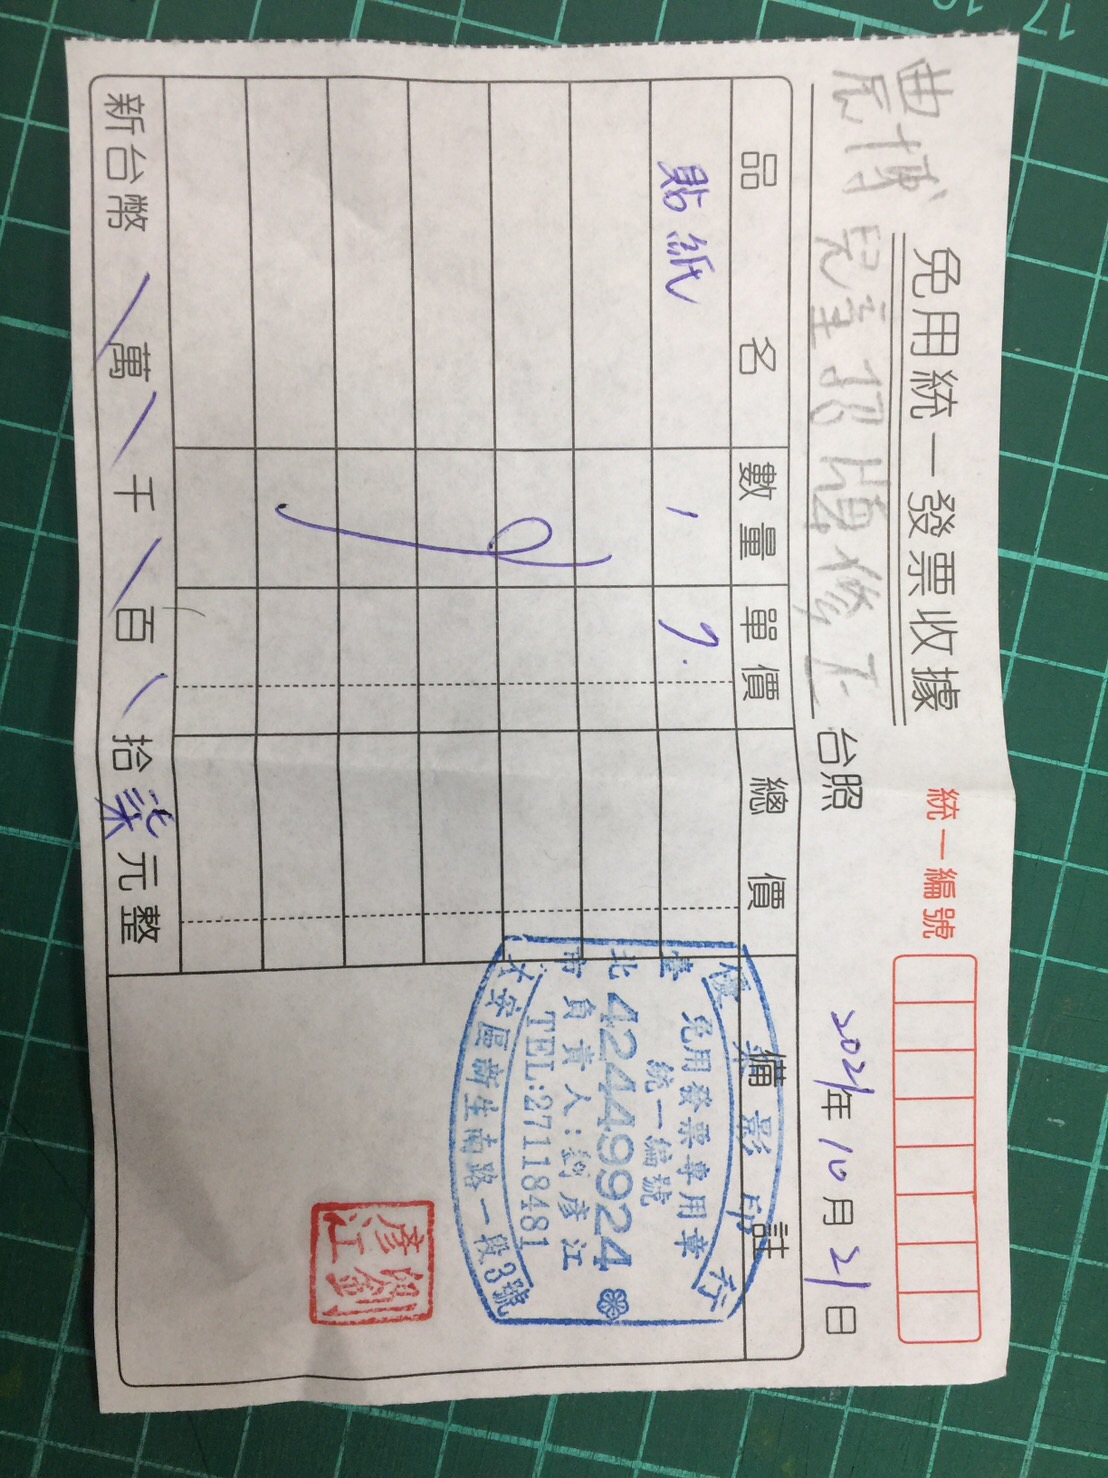 免用統一發票收據
統一編號
農博 兒童 修正 台照
2021年10月21日
品名 數量 單價 總價 備註
貼紙 1 7.
新台幣 萬 千 百 拾 柒 元整
優 影印行
免用發票專用章
統一編號
42449924
負責人:劉彥江
TEL:27118481
臺北市大安區新生南路一段3號
劉彥江
17